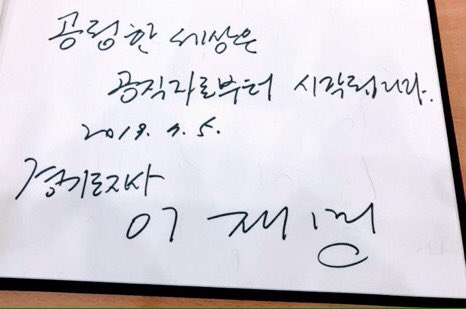 공정한 세상은
공직자로부터 시작됩니다.
2019. 9. 5.
경기도지사
이재명